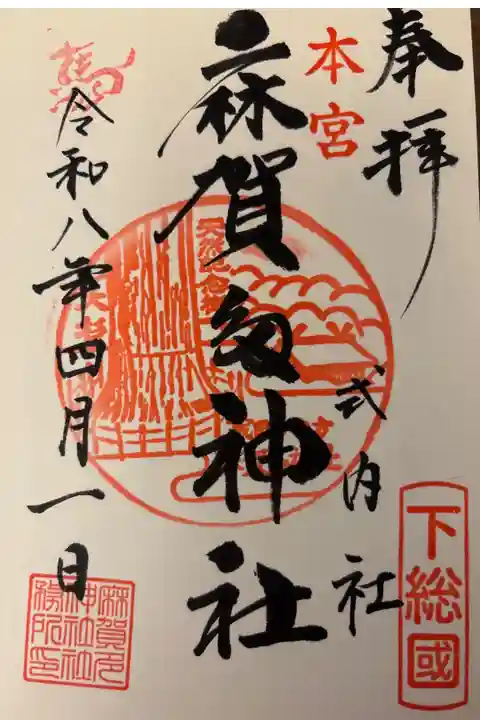 奉拝
本宮
式内社
下総國
麻賀多神社
令和八年四月一日
麻賀多
神社社
務所印